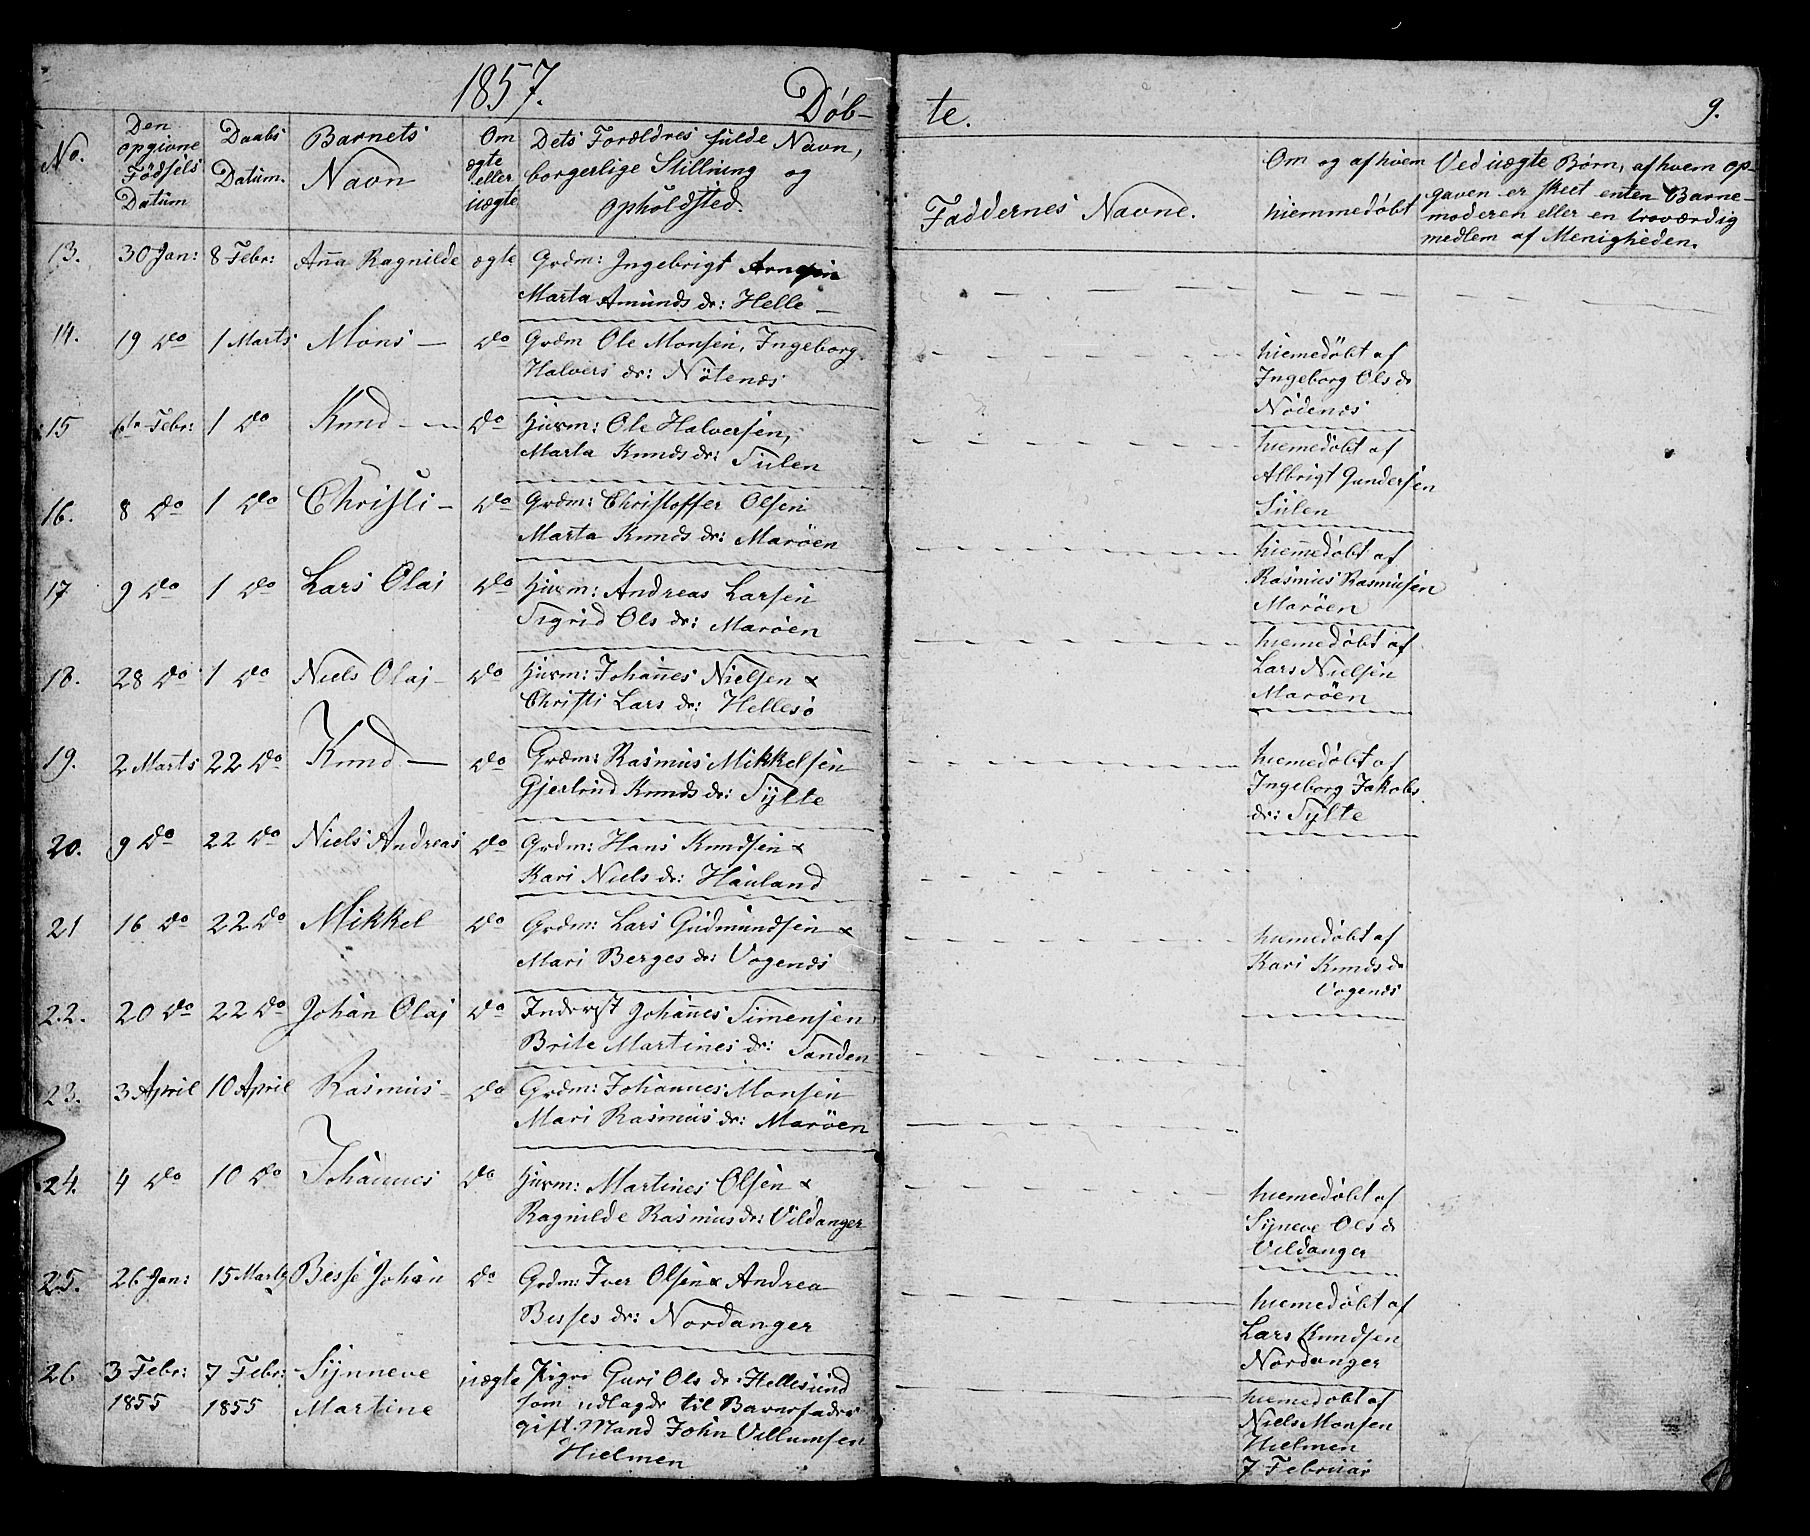 1857.
Døb-
te.
9.
No.
Den
opgivne
Fødsels
Datum
Daabs
Datum.
Barnets
Navn
Om
ægte
eller
uægte
Dets Forældres fulde Navn,
borgerlige Stillning og
Opholdsted.
Faddernes Navne.
Om og af hvem
hiemmedøbt
Ved uægte Børn, af hvem op-
gaven er skeet enten Barne-
moderen eller en troværdig
medlem af Menigheden.
13. 30 Jan: 8 Febr: Anna Ragnilde ægte Grdm: Ingebrigt Arnesen
Marta Amunds dr: Helle –
14. 19 do 1 Marts Mons – do Grdm Ole Monsen, Ingeborg
Halvers dr: Nötenes
hiemedöbt af
Ingeborg Ols dr
Nödenes
15 6te Febr: 1 do Knud – do Husm: Ole Halversen,
Marta Knuds dr: Sulen
hiemedöbt af
Albrigt Gundersen
Sulen
16. 8 do 1 do Christi – do Grdm: Christoffer Olsen
Marta Knuds dr: Maröen
hiemedöbt af
Rasmus Rasmusen
Maröen
17 9 do 1 do Lars Olai do Husm: Andreas Larsen
Sigrid Ols dr: Maröen
hiemedöbt af
Lars Nielsen
Maröen
18. 28 do 1 do Niels Olaj – do Husm: Johannes Nielsen &
Christi Lars dr: Hellesö
19. 2 Marts 22 do Knud – do Grdm: Rasmus Mikkelsen
Gjertrud Knuds dr: Sylte
hiemedöbt af
Ingeborg Jakobs
dr: Sylte
20. 9 do 22 do Niels Andreas do Grdm: Hans Knudsen &
Kari Niels dr: Hauland
21 16 do 22 do Mikkel do Grdm: Lars Gudmundsen &
Mari Berges dr: Vogenes
hiemedöbt af
Kari Knuds dr
Vogenes
22. 20 do 22 do Johan Olaj do Inderst Johannes Simensen
Brite Martines dr: Sanden
23. 3 April 10 April Rasmus – do Grdm: Johannes Monsen
Mari Rasmus dr: Maröen
24. 4 do 10 do Johannes do Husm: Martines Olsen &
Ragnilde Rasmus dr: Vildanger
hiemedöbt af
Syneve Ols dr
Vildanger
25. 26 Jan: 15 Marts Besse Johan do Grdm: Iver Olsen & Andrea
Besses dr: Nordanger
hiemedöbt af
Lars Knudsen
Nordanger
26 3 Febr: 7 Febr: Synneve uægte Pige Guri Ols dr: Hellesund
1855 1855 Martine som udlagde til Barnefader
gift Mand John Villumsen
Hielmen
hiemedöbt af
Niels Monsen
Hielmen
7 Februar